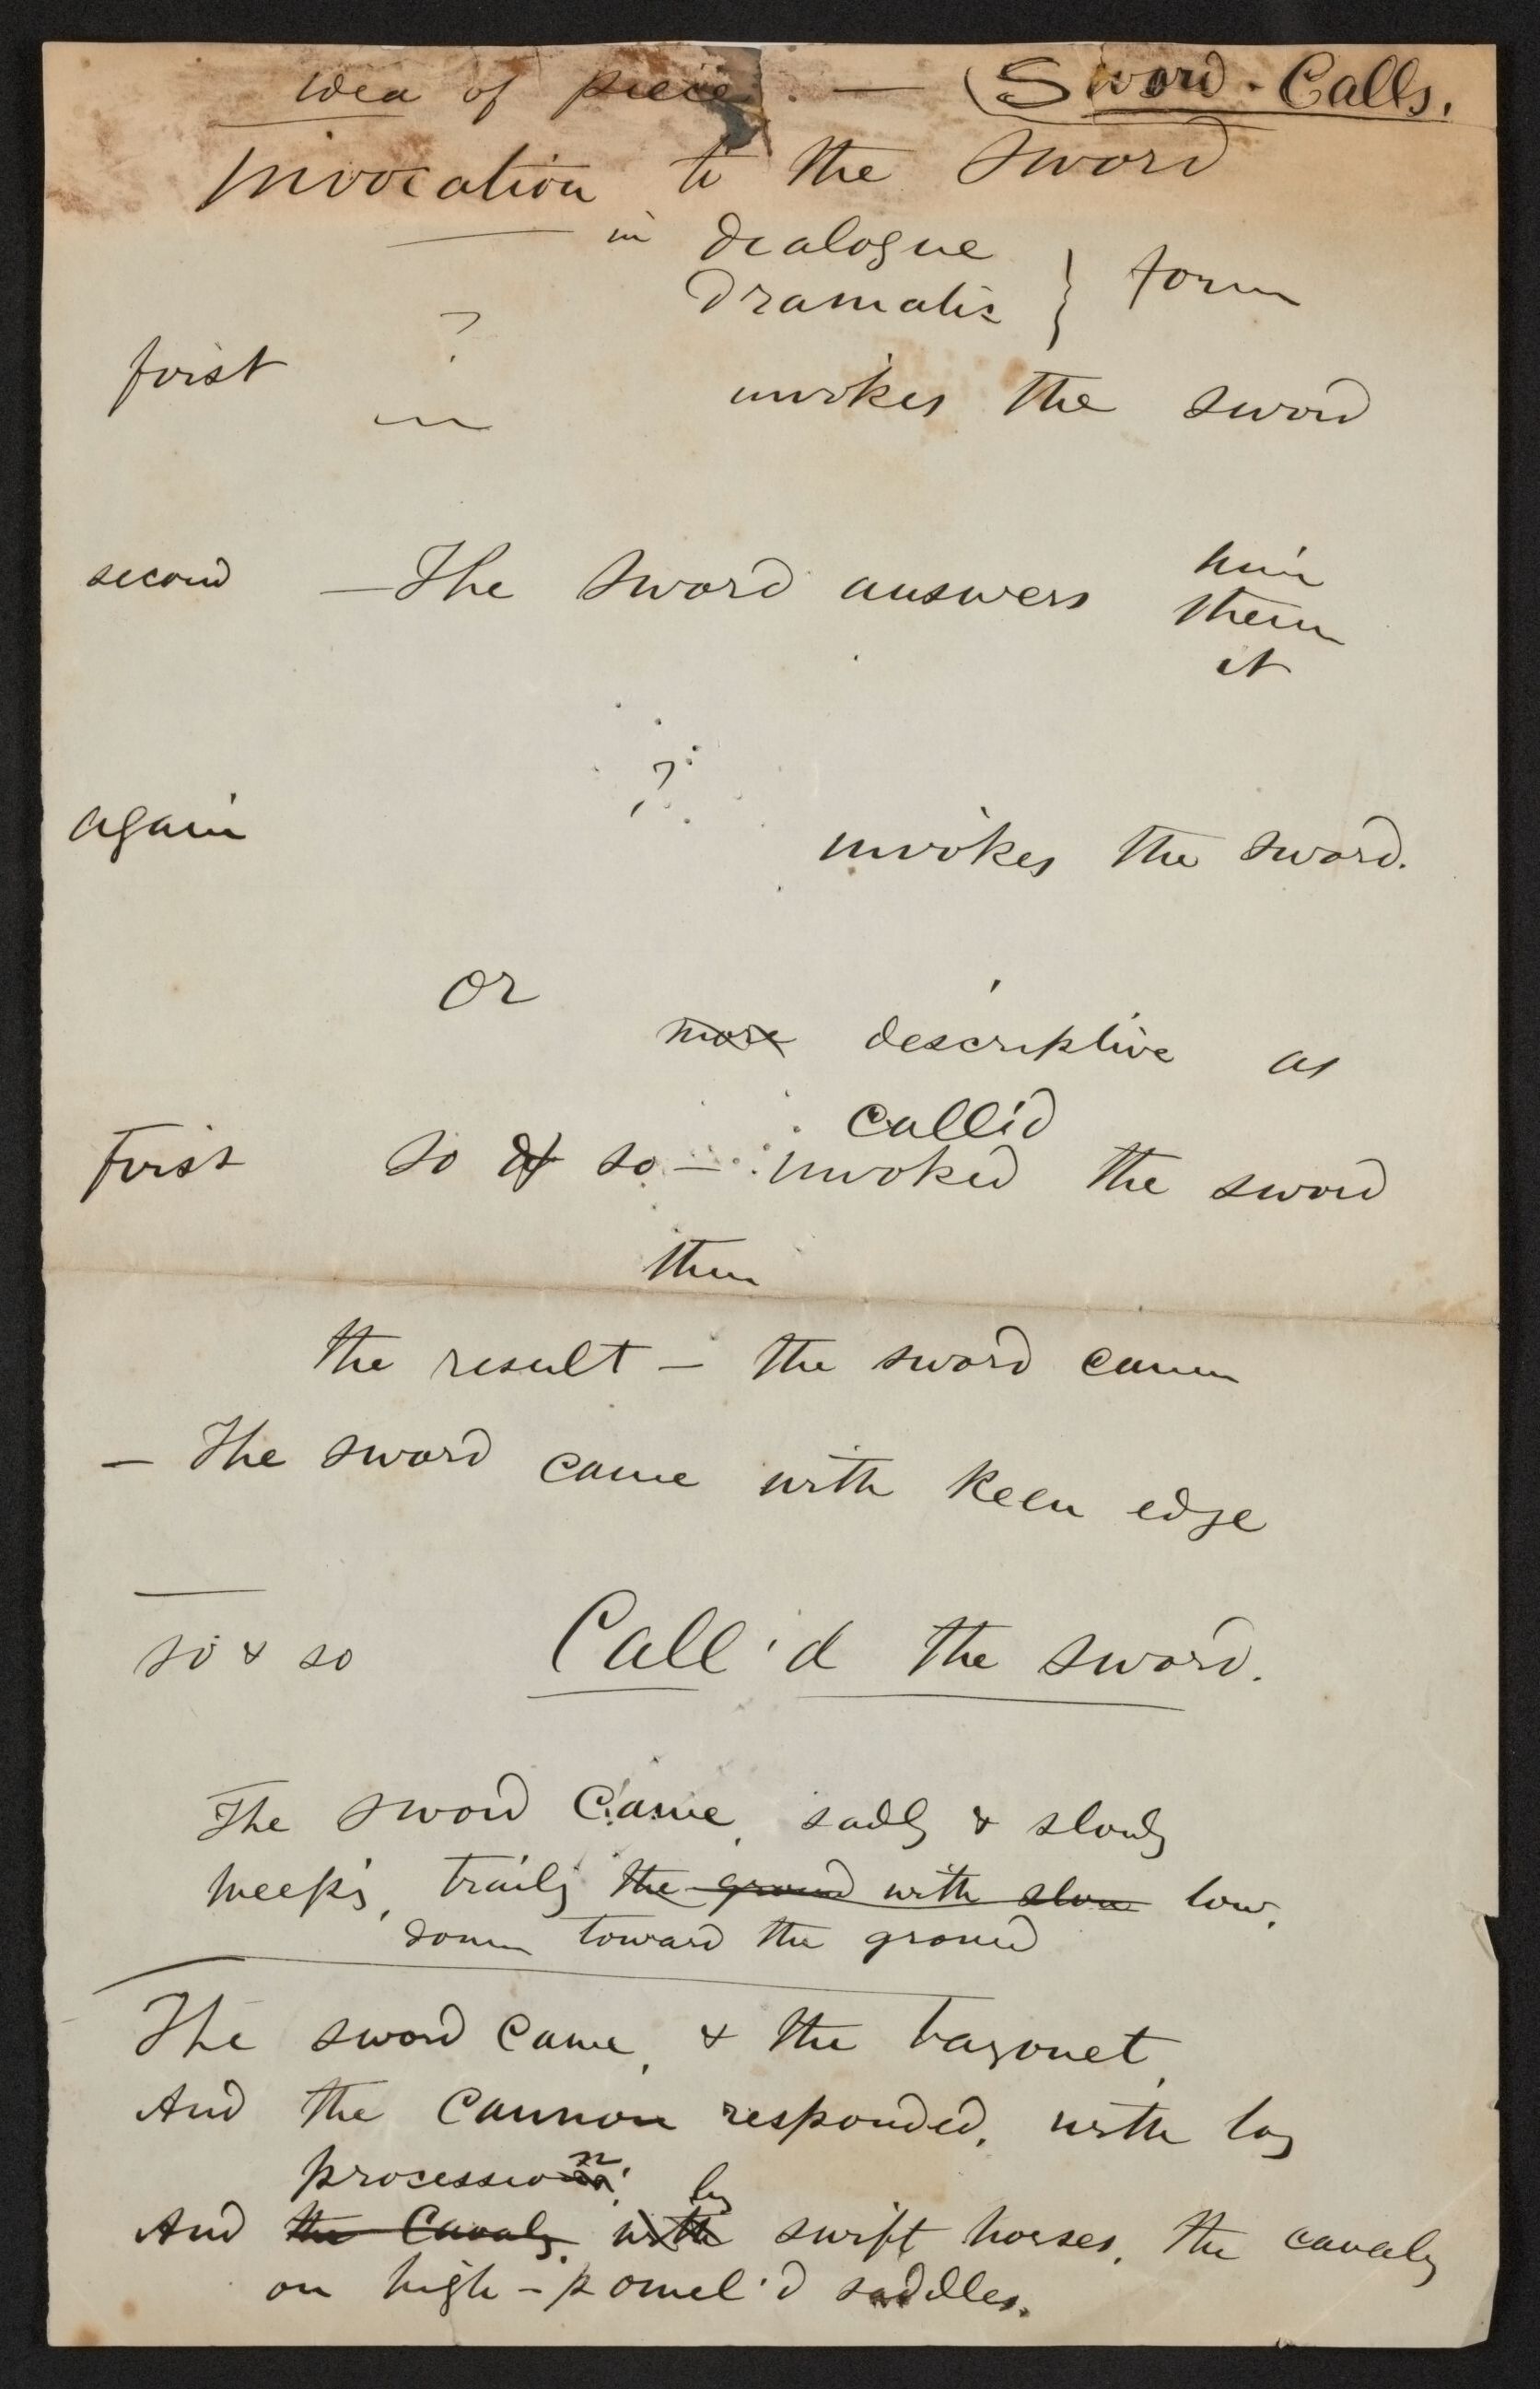 idea of piece. — (Sword-Calls.
invocation to the sword
in dialogue
dramatic } form
first ? invokes the sword
second — The sword answers him
them
it
?
again invokes the sword.
or
more descriptive as
call'd
First so & so — invoked the sword
then
the result — the sword came
— The sword came with keen edge
so & so Call'd the sword.
The sword came, sadly & slowly
trailg the ground with slow low,
down toward the ground
The sword came, & the bayonet,
And the cannon responded, with log
procession;
by
And the Cavaly, with swift horses, the cavaly
on high-pomel'd saddles.